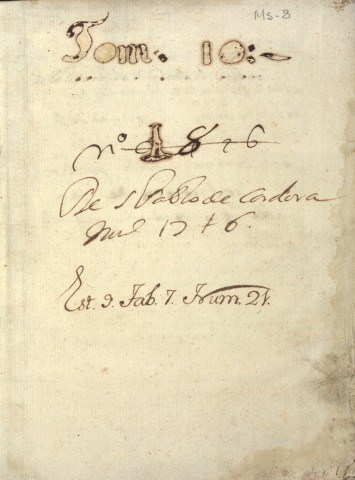 Ms-8
Tom. 10:-
nº 1826
De S Pablo de Cordova
Num 1746.
Est. 9. Tab. 7. Num. 21.